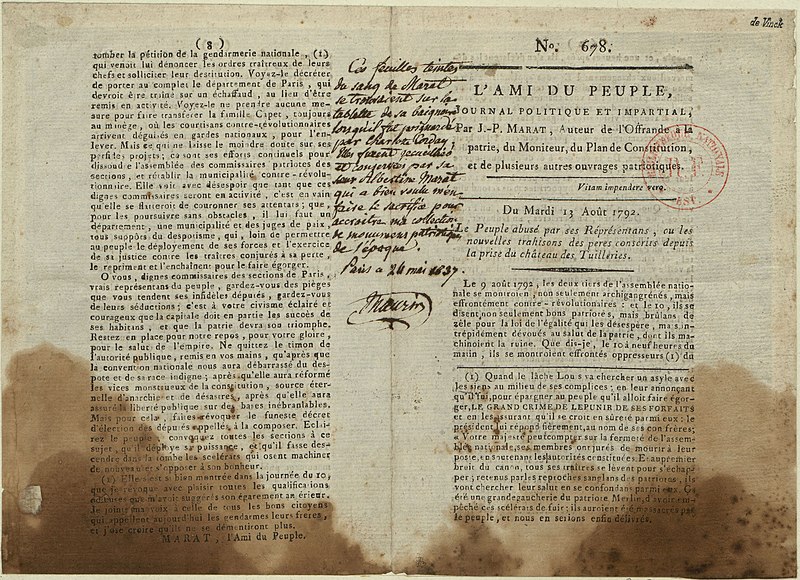 de Vinck
(8)
tomber la pétition de la gendarmerie nationale, (1)
qui venoit lui dénoncer les ordres traîtreux de leurs
chefs et solliciter leur destitution. Voyez-le décréter
de porter au complet le département de Paris, qui
devroit être traîné sur un échaffaud, au lieu d'être
remis en activité. Voyez-le ne prendre aucune me-
sure pour faire transférer la famille Capet, toujours
au manége, où les courtisans contre-révolutionnaires
arrivent déguisés en gardes nationaux, pour l'en-
lever. Mais ce qui ne laisse le moindre doute sur ses
perfides projets; ce sont ses efforts continuels pour
dissoudre l'assemblée des commissaires patriotes des
sections, et rétablir la municipalité contre-révolu-
tionnaire. Elle voit avec désespoir que tant que ces
dignes commissaires seront en activité, c'est en vain
qu'elle se flatteroit de consommer ses attentats; que
pour les poursuivre sans obstacles, il lui faut un
département, une municipalité et des juges de paix
tous suppôts du despotisme, qui, loin de permettre
au peuple le déployement de ses forces et l'exercice
de sa justice contre les traîtres conjurés à sa perte,
le repriment et l'enchaînent pour le faire égorger.
O vous, dignes commissaires des sections de Paris,
vrais représentans du peuple, gardez-vous des pièges
que vous tendent ses infideles députés, gardez-vous
de leurs séductions; c'est à votre civisme éclairé et
courageux que la capitale doit en partie les succès de
ses habitans, et que la patrie devra son triomphe.
Restez en place pour notre repos, pour votre gloire,
pour le salut de l'empire. Ne quittez le timon de
l'autorité publique, remis en vos mains, qu'après que
la convention nationale nous aura débarrassé du des-
pote et de sa race indigne; après qu'elle aura réformé
les vices monstrueux de la constitution, source éter-
nelle d'anarchie et de désastres, après qu'elle aura
assuré la liberté publique sur des bases inébranlables.
Mais pour cela, faites révoquer le funeste décret
d'élection des députés appellés à la composer. Eclai-
rez le peuple, convoquez toutes les sections à ce
sujet, qu'il déploye sa puissance, et qu'il fasse des-
cendre dans la tombe les scélérats qui osent machiner
de nouveau et s'opposer à son bonheur.
(1) Elle s'est si bien montrée dans la journée du 10,
que je révoque avec plaisir toutes les qualifications
odieuses que m'avoit suggérés son égarement antérieur.
Je joins ma voix à celle de tous les bons citoyens
qui appellent aujourd'hui les gendarmes leurs freres,
et j'ose croire qu'ils ne se démentiront plus.
MARAT, l'Ami du Peuple.
Ces feuilles teintes
du sang de Marat
se trouvaient sur la
tablette de sa baignoire
lorsqu'il fut poignardé
par Charlotte Corday;
elles furent recueillies
et conservées par sa
sœur Albertine Marat
qui a bien voulu m'en
faire le sacrifice pour
accroître ma collection
de monumens patriotiques
de l'époque.
Paris a 24 mai 1837.
Maurin
No. 678.
L'AMI DU PEUPLE,
JOURNAL POLITIQUE ET IMPARTIAL,
Par J.-P. MARAT, Auteur de l'Offrande à la
patrie, du Moniteur, du Plan de Constitution,
et de plusieurs autres ouvrages patriotiques.
Vitam impendere vero.
Du Mardi 13 Août 1792.
Le Peuple abusé par ses Représentans, ou les
nouvelles trahisons des peres conscrits depuis
la prise du château des Tuilleries.
Le 9 août 1792, les deux tiers de l'assemblée natio-
nale se montroient, non seulement archigangrenés, mais
effrontément contre-révolutionnaires: et le 10, ils se
disent, non seulement bons patriotes, mais brûlans de
zèle pour la loi de l'égalité qui les désespère, mais in-
trépidement dévoués au salut de la patrie, dont ils ma-
chinoient la ruine. Que dis-je, le 10 à neuf heures du
matin, ils se montroient effrontés oppresseurs (1) du
(1) Quand le lâche Louis va chercher un asyle avec
les siens au milieu de ses complices; en leur annonçant
qu'il vit, pour épargner au peuple qu'il alloit faire égor-
ger, LE GRAND CRIME DE LE PUNIR DE SES FORFAITS
et en les assurant qu'il se croit en sûreté parmi eux: le
président lui répond fièrement, au nom de ses confreres;
« Votre majesté peut compter sur la fermeté de l'assem-
blée nationale, ses membres ont juré de mourir à leur
poste, en soutenant les autorités constituées. Et au premier
bruit du canon, tous ses traîtres se lèvent pour s'échap-
per; retenus par les reproches sanglans des patriotes, ils
vont chercher leur salut en se confondant parmi eux. Ç'a
été une grande gaucherie du patriote Merlin, d'avoir em-
pêché ces scélérats de fuir; ils auroient été massacrés par
le peuple, et nous en serions enfin délivrés.